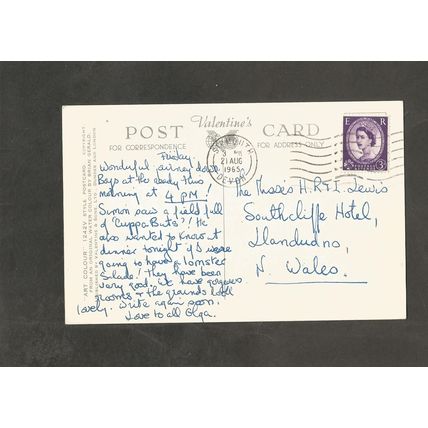 Valentine's
POST CARD
FOR CORRESPONDENCE
FOR ADDRESS ONLY
"ART COLOUR" A2422V STYLE POSTCARD. COPYRIGHT
FROM AN ORIGINAL WATER COLOUR BY BRIAN GERALD.
PUBLISHED BY VALENTINE & SONS LTD. DUNDEE AND LONDON
SIDMOUTH
21 AUG
1965
DEVON
E R
3D
Friday.
Wonderful journey down
Boys at the ready this
morning at 4 PM!
Simon saw a field full
of "Cuppa Buts"! He
also wanted to know at
dinner tonight if I were
going to have a lomster
Salade! They have been
very good. We have gorgeous
rooms & the grounds
lovely. Write again soon.
Love to all Olga.
The Misses H.R & I. Lewis
Southcliffe Hotel,
Llandudno,
N. Wales.